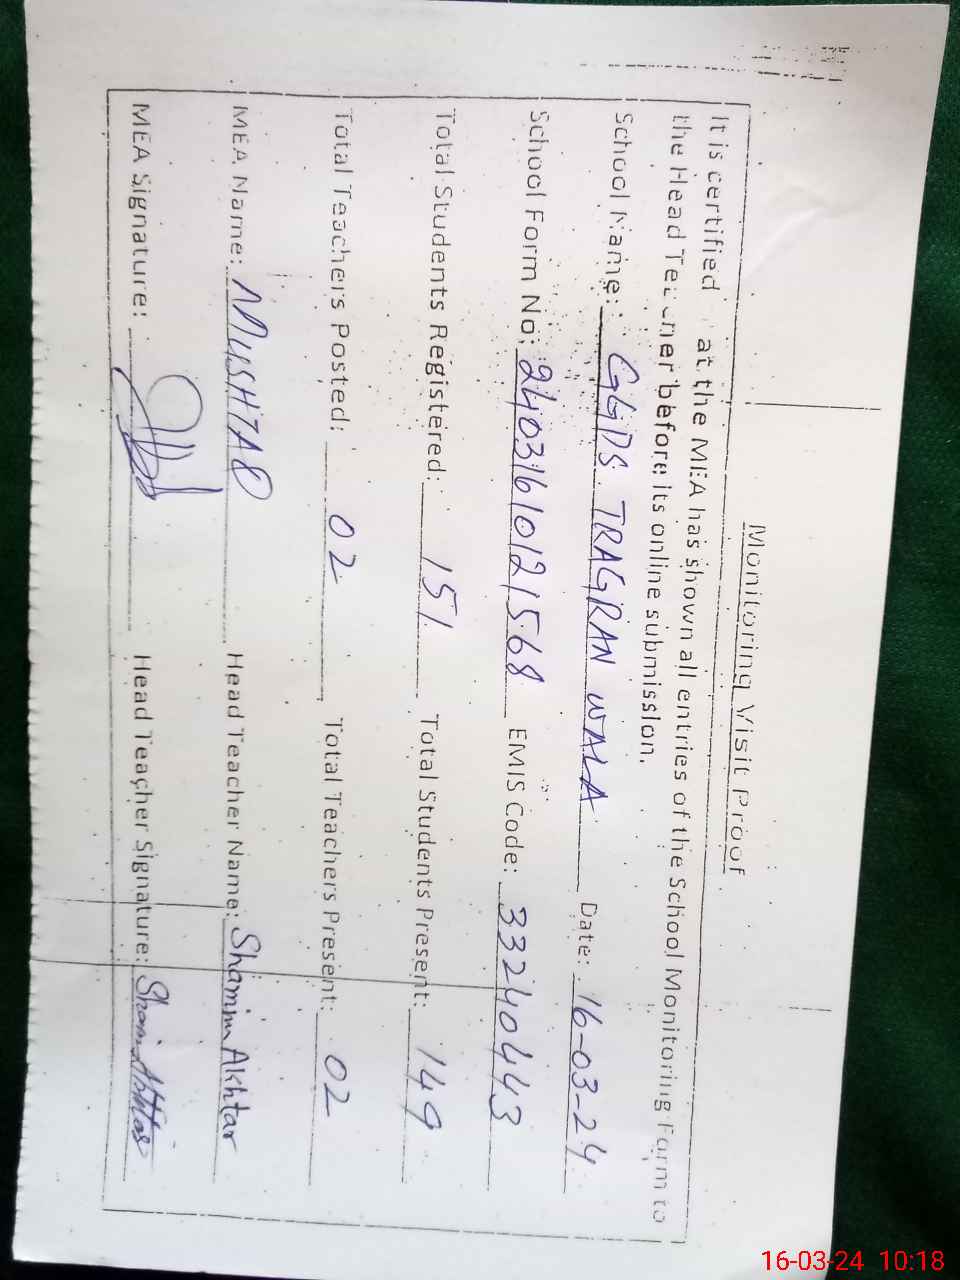 Monitoring Visit Proof
It is certified at the MEA has shown all entries of the School Monitoring Form to
the Head Teacher before its online submission.
School Name: GGPS TRAGRAN WALA Date: 16-03-24
School Form No: 24031610121568 EMIS Code: 33240443
Total Students Registered: 151 Total Students Present: 149
Total Teachers Posted: 02 Total Teachers Present: 02
MEA Name: MUSHTAQ Head Teacher Name: Shamim Akhtar
MEA Signature: Head Teacher Signature: Shamim Akhtar
16-03-24 10:18